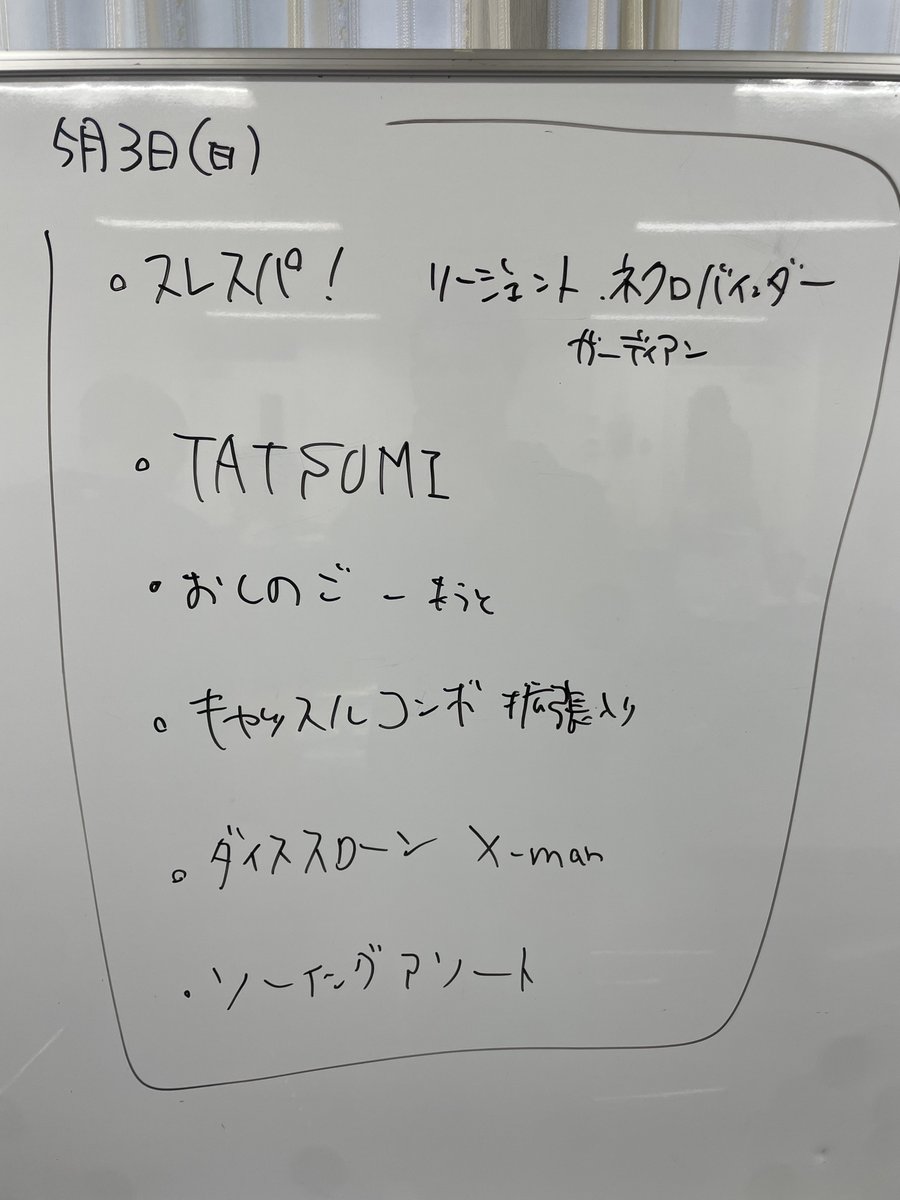 5月3日(日)
・スレスパ! リージェント.ネクロバインダー
ガーディアン
・TATSUMI
・おしのご - まうと
・キャッスルコンボ 拡張入り
・ダイススローン X-man
・ソーイングアソート